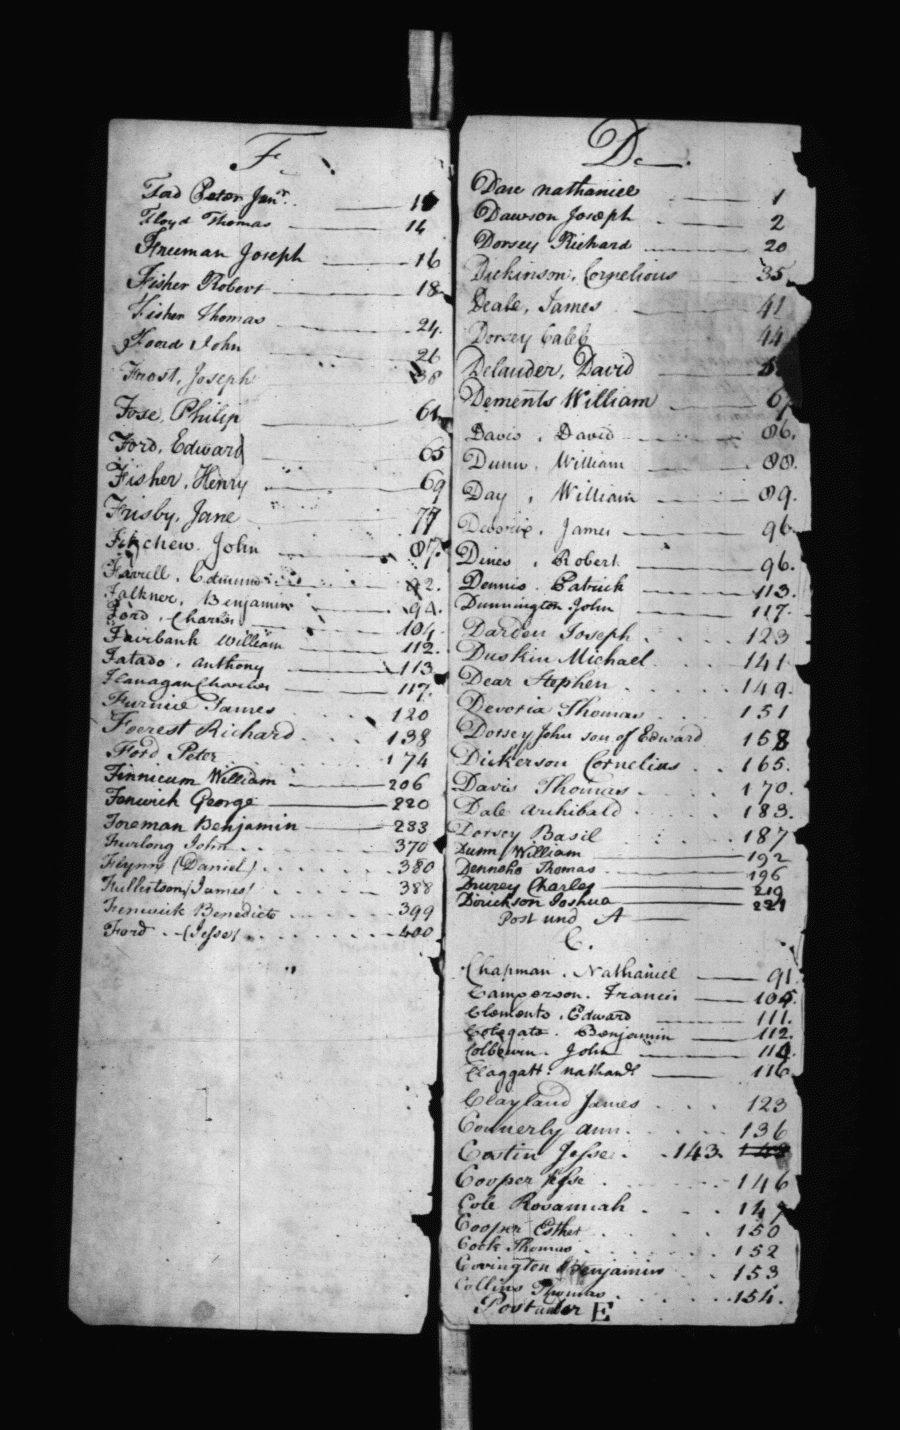 F
Ford Peter Junr. 1
Floyd Thomas 14
Freeman Joseph 16
Fisher Robert 18
Fisher Thomas 24.
Foord John 26
Frost, Joseph 38
Fose, Philip 61
Ford, Edward 65
Fisher, Henry 69
Frisby, Jane 77
Fitchew John 87.
Farrell, Edmund 92.
Falkner, Benjamin 94.
Ford, Charles 104
Fairbank William 112.
Fatado, Anthony 113
Flanagan Charles 117.
Furnice James 120
Forrest Richard 138
Ford Peter 174
Finnicum William 206
Fenwick George 220
Foreman Benjamin 233
Furlong John 370
Flynn (Daniel) 380
Fullertson (James) 388
Fenwick Benedict 399
Ford (Jesse) 400
D
Dare nathaniel 1
Dawson Joseph 2
Dorsey Richard 20
Dickinson, Cornelious 35
Deale, James 41
Dorsey Caleb 44
Delauder, David
Dements William 67
Davis, David 86.
Dunn, William 88.
Day, William 89.
James 96
Dines, Robert 96.
Dennis Patrick 113.
Dunnington John 117.
Darden Joseph 123
Duskin Michael 141
Dear Stephen 149.
Devoria Thomas 151
Dorsey John son of Edward 158
Dickerson Cornelius 165.
Davis Thomas 170.
Dale Archibald 183.
Dorsey Basil 187
Dunn William 192
Dennoho Thomas 196
Drurey Charles 219
Dorickson Joshua 221
Post und A
C.
Chapman, Nathaniel 91
Camperson. Francis 105.
Clements, Edward 111.
Colegate. Benjamin 112.
John 114.
Claggatt. nathanl. 116
Clayland James 123
Connerly ann 136
Costin Jesse 143.
Cooper Jesse 146
Cole Rosannah 147
Cooper Esther 150
Cock Thomas 152
Covington Benjamin 153
Collins Thomas 154.
Post under E